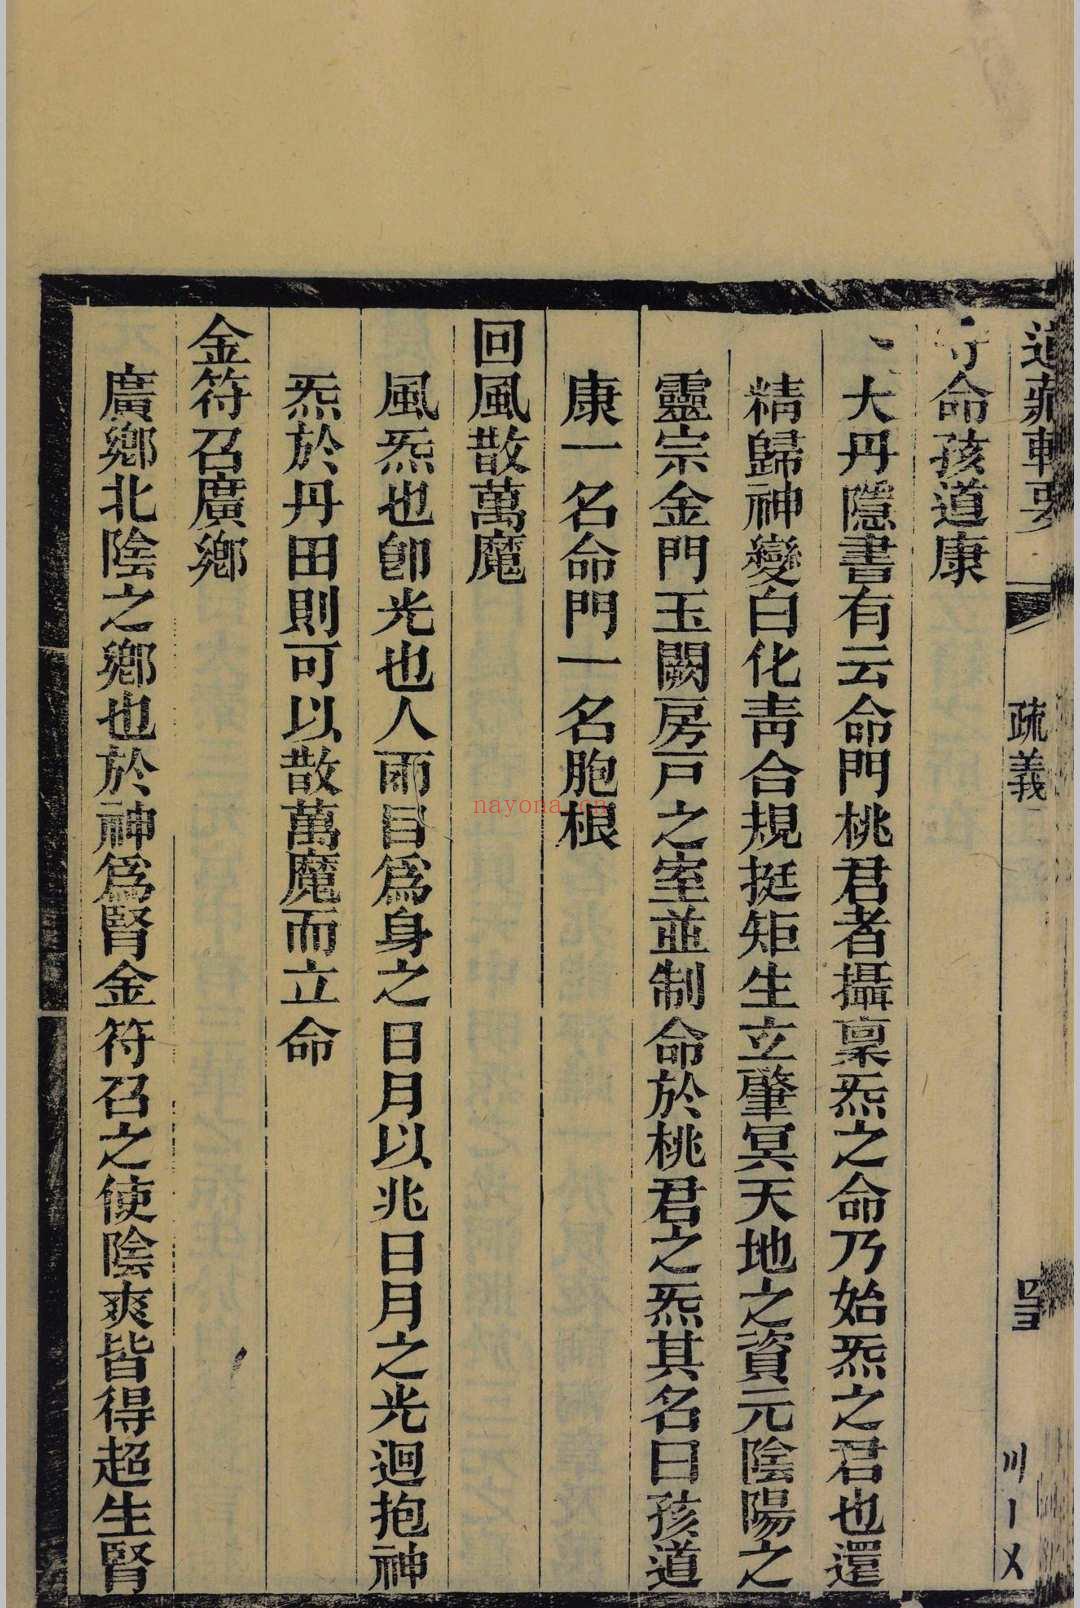 道藏輯要
疏義
命孩道康
大丹隱書有云命門桃君者攝稟炁之命乃始炁之君也還
精歸神變白化靑合規挺矩生立肇冥天地之資元陰陽之
靈宗金門玉闕房戸之室並制命於桃君之炁其名曰孩道
康一名命門一名胞根
回風散萬魔
風炁也卽光也人兩目爲身之日月以兆日月之光迴抱神
炁於丹田則可以散萬魔而立命
金符召廣鄉
廣鄉北陰之鄉也於神爲腎金符召之使陰爽皆得超生腎
nayona.cn